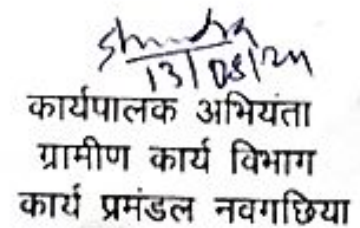 13/05/24
कार्यपालक अभियंता
ग्रामीण कार्य विभाग
कार्य प्रमंडल नवगछिया